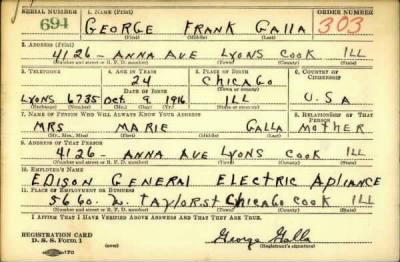 SERIAL NUMBER 1. NAME (Print) ORDER NUMBER
694 GEORGE FRANK GALLA 303
(First) (Middle) (Last)
2. ADDRESS (Print)
4126 - ANNA AVE LYONS COOK ILL
(Number and street or R. F. D. number) (Town) (County) (State)
3. TELEPHONE 4. AGE IN YEARS 5. PLACE OF BIRTH 6. COUNTRY OF CITIZENSHIP
24 CHICAGO
DATE OF BIRTH
LYONS 6735 Oct. 9 1916 ILL U.S.A
(Exchange) (Number) (Mo.) (Day) (Yr.) (State or country)
7. NAME OF PERSON WHO WILL ALWAYS KNOW YOUR ADDRESS 8. RELATIONSHIP OF THAT PERSON
MRS MARIE GALLA MOTHER
(Mr., Mrs., Miss) (First) (Middle) (Last)
9. ADDRESS OF THAT PERSON
4126 - ANNA AVE LYONS COOK ILL
(Number and street or R. F. D. number) (Town) (County) (State)
10. EMPLOYER'S NAME
EDISON GENERAL ELECTRIC APLIANCE
11. PLACE OF EMPLOYMENT OR BUSINESS
5660. W. TAYLOR ST CHICAGO COOK ILL
(Number and street or R. F. D. number) (Town) (County) (State)
I AFFIRM THAT I HAVE VERIFIED ABOVE ANSWERS AND THAT THEY ARE TRUE.
REGISTRATION CARD
D. S. S. Form 1 George Galla
(Registrant's signature)